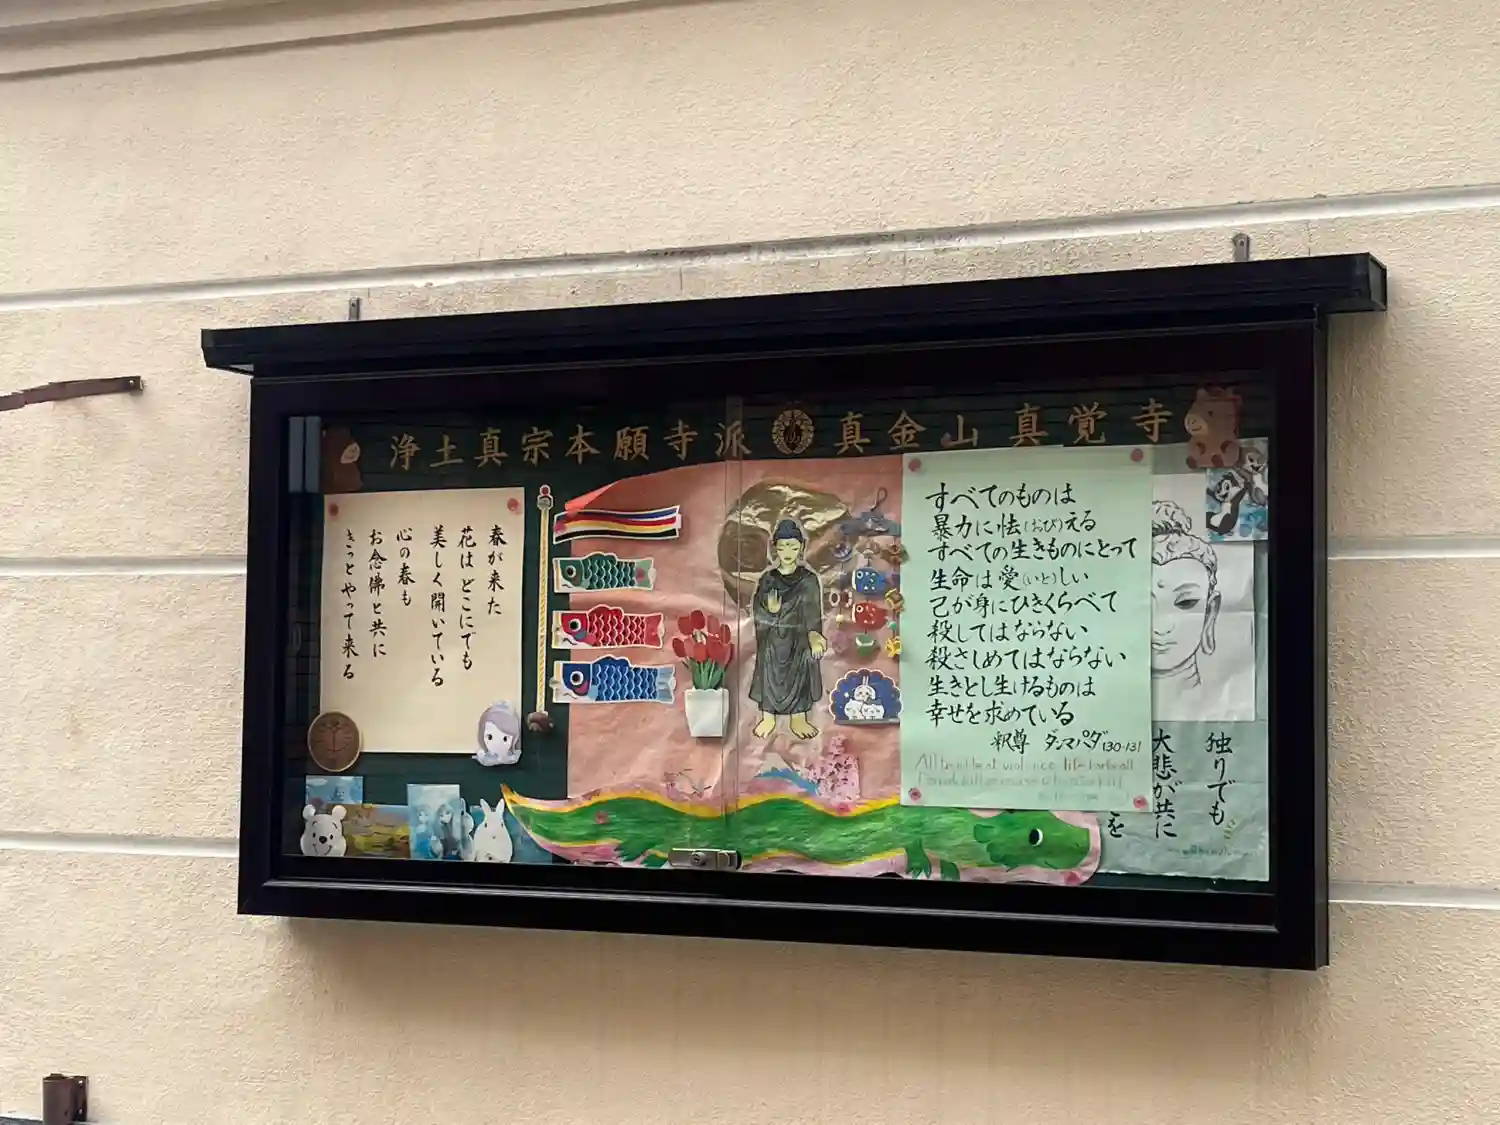 浄土真宗本願寺派 真金山 真覚寺
春が来た
花は どこにでも
美しく開いている
心の春も
お念佛と共に
きっとやって来る
すべてのものは
暴力に怯(おび)える
すべての生きものにとって
生命は愛(いと)しい
己が身にひきくらべて
殺してはならない
殺さしめてはならない
生きとし生けるものは
幸せを求めている
釈尊 ダンマパダ130-131
All tremble at violence life
独りでも
大悲が共に
を